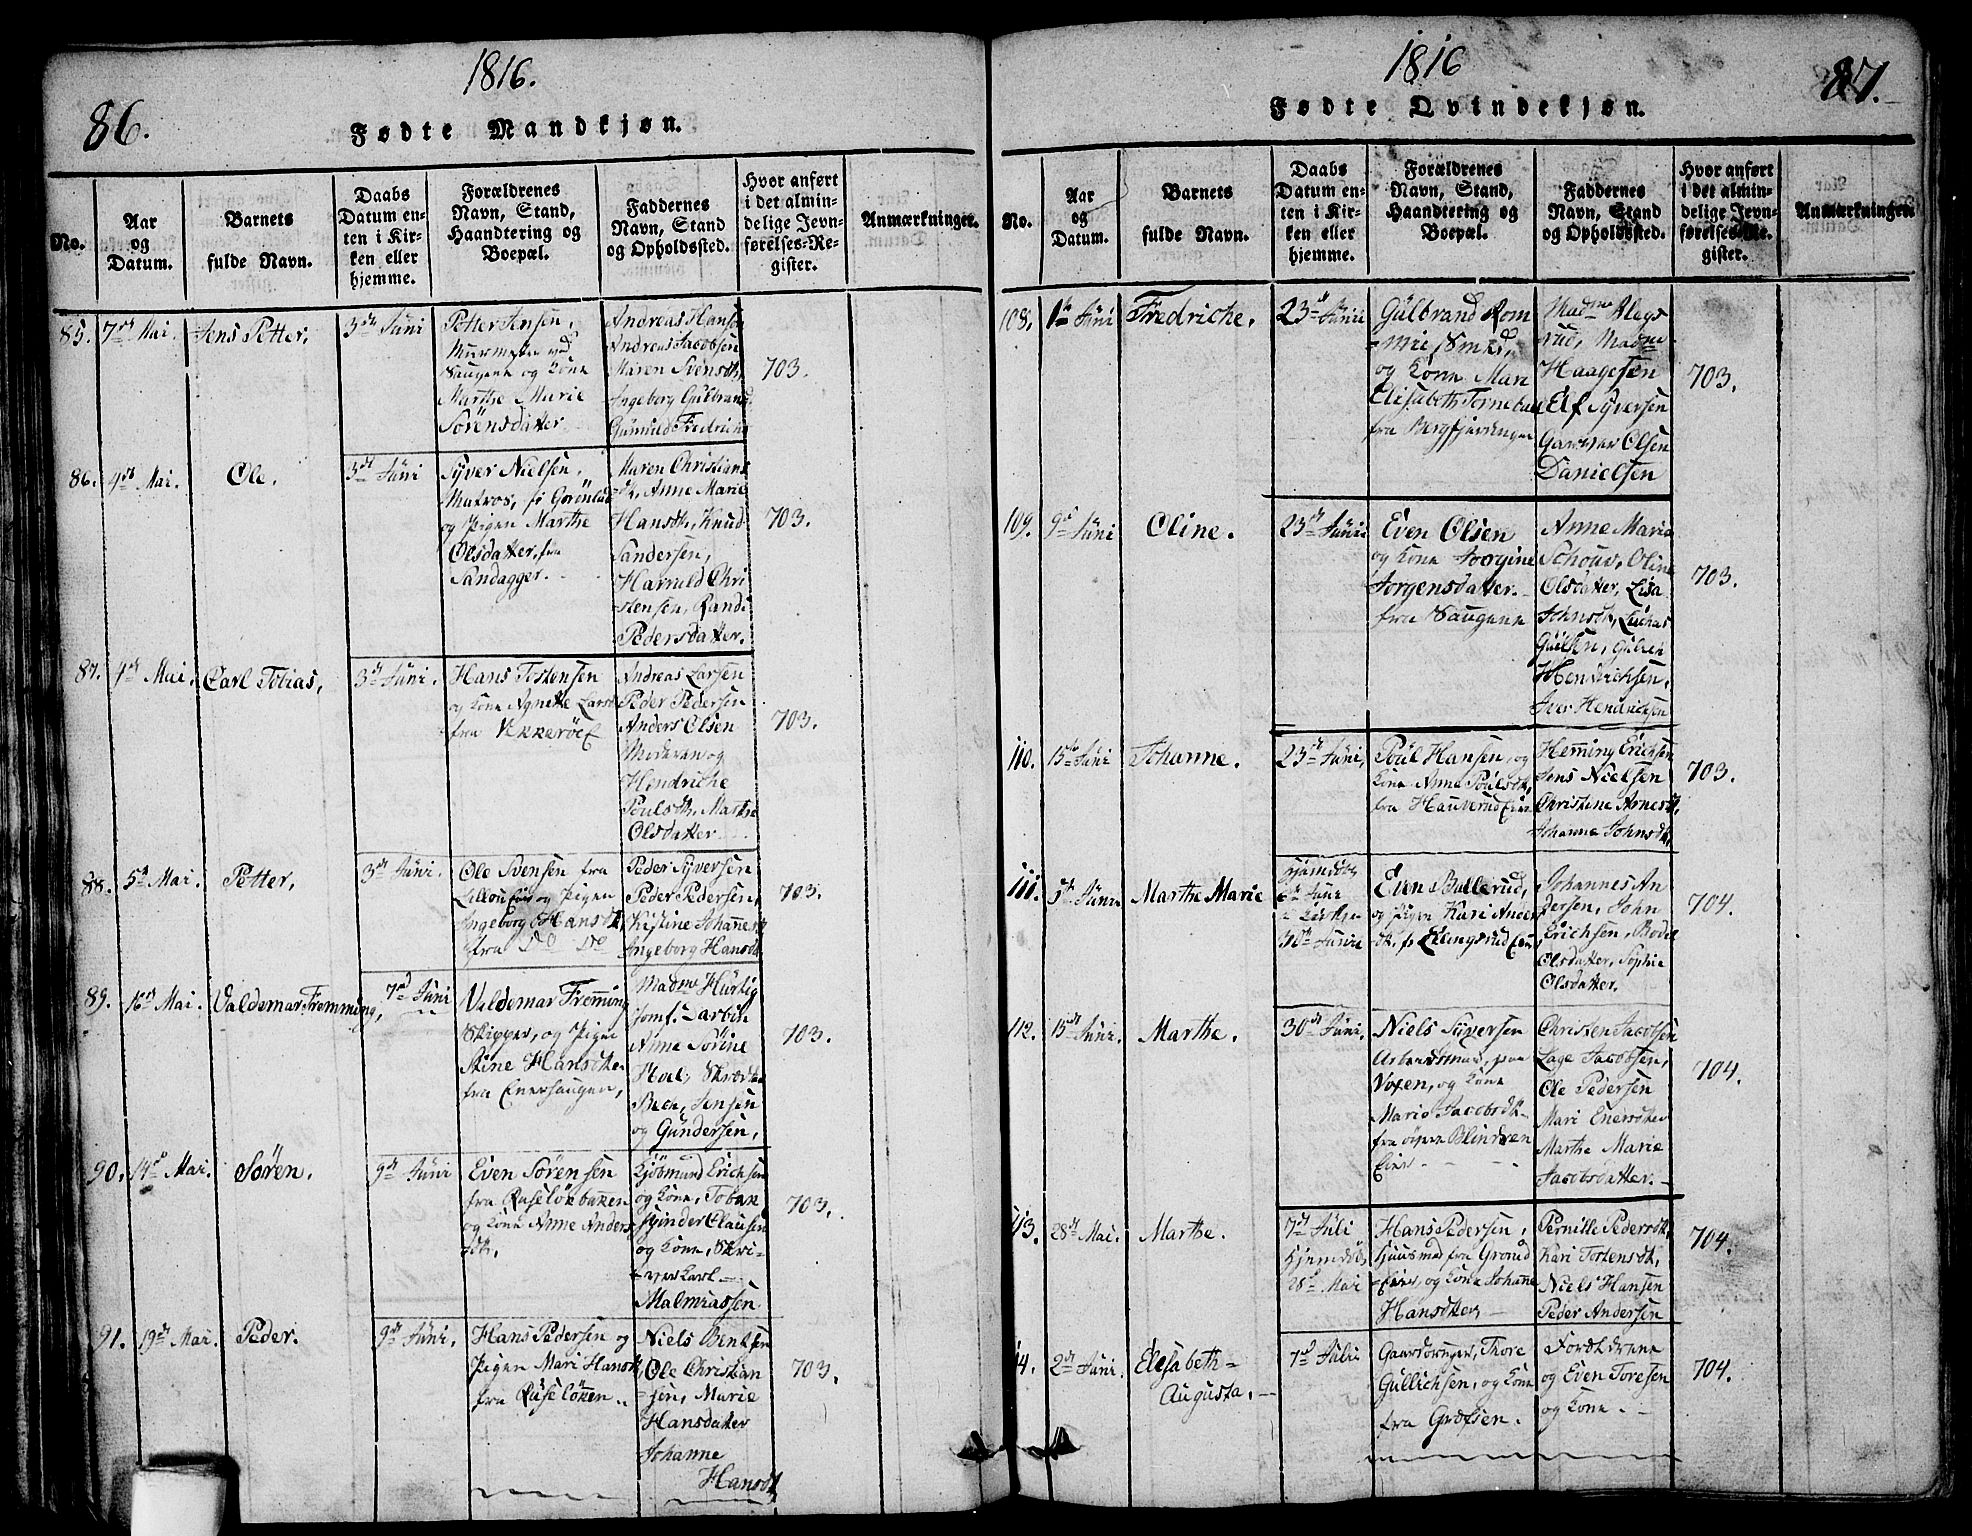 86.
1816.
Fødte Mandkjøn.
No.
Aar
og
Datum.
Barnets
fulde Navn.
Daabs
Datum en-
ten i Kir-
ken eller
hjemme.
Forældrenes
Navn, Stand,
Haandtering og
Boepæl.
Faddernes
Navn, Stand
og Opholdssted.
Hvor anført
i det almin-
delige Jevn-
førelses-Re-
gister.
Anmærkninger.
85. 7de Mai. Jens Petter. 3de Juni
Petter Jensen,
ved
Saugene og Kone
Marthe Marie
Sörensdatter
Andreas Hansen
Andreas Jacobsen
Maren Svensdtr,
Ingeborg Gulbrand
Gunnild Fredrichs
703.
86. 4de Mai. Ole. 3de Juni
Syver Nielsen,
Matros,
og Pigen Marthe
Olsdatter, fra
Sandagger.
Maren Christians
dtr, Anne Marie
Hansdtr, Knud
Sandersen,
Harrald Chri
stensen, Randi
Pedersdatter.
703.
87. 4de Mai. Carl Tobias, 3de Juni.
Hans Tostensen
og Kone Agnethe Larsd
fra
Andreas Larsen
Peder Pedersen
Anders Olsen
og
Hendriche
Poulsdtr, Marthe
Olsdatter
703.
88. 5te Mai. Petter, 3de Juni.
Ole Svensen fra
og Pigen
Ingeborg Hansdtr,
fra Do Do
Peder Syversen
Peder Pedersen,
Kistine Johannesd
Ingeborg Hansdtr
703.
89. 16de Mai. Valdemar Fremming, 7de Juni
Valdemar Freming
Skipper, og Pigen
Stine Hansdtr
fra Enerhaugen,
Madme Hurtig
Jomf. Larsen
Anne Sörine
Hoel,
Jensen
og Gundersen,
703.
90. 14de Mai. Sören. 9de Juni
Even Sörensen
fra Ruselökbaken
og Kone Anne Anders
dtr,
Kjöbmand Erichsen
og Kone, Tobak
spinder Clausen
og Kone, Skri-
Malmiassen
703.
91. 19de Mai. Peder. 9de Juni.
Hans Pedersen og
Pigen Mari Hansdtr
fra Ruselöken.
Niels Bentsen
Ole Christian
sen, Marie
Hansdatter
Johanne
Hansdtr
703.
1816
87.
Fødte Qvindekjøn.
No.
Aar
og
Datum.
Barnets
fulde Navn.
Daabs
Datum en-
ten i Kir-
ken eller
hjemme.
Forældrenes
Navn, Stand,
Haandtering og
Boepæl.
Faddernes
Navn, Stand
og Opholdssted.
Hvor anført
i det almin-
delige Jevn-
førelses-Re-
gister.
Anmærkninger.
108. 1te Juni Fredriche. 23de Juni
Gulbrand Rom
Smed,
og Kone Mari
Elisabeth
fra
Madme Alegs
rud, Madme
Haagesen
Elf Syversen
Olsen
Danielsen
703.
109. 9de Juni Oline. 23de Juni
Even Olsen
og Kone Jorgine
Jorgensdatter.
fra Saugene
Anne Maria
Schouv, Oline
Olsdatter, Lisa
Johnsdtr, Luchas
Hendrichsen,
Iver Hendrichsen
703.
110. 15de Juni Johanne. 23de Juni,
Poul Hansen, og
Kone Anne Poulsdtr,
fra
Heming Erichsen
Jens Nielsen
Christine Arnesdtr,
Johanne Johnsdtr,
703.
111. 5te Juni Marthe Marie
hjemdöbt
6te Juni
i Kirken
30te Juni
Even Bullerud,
og Pigen Kari Anders
dtr,
Johannes An
dersen, John
Erichsen, Bodel
Olsdatter, Sophie
Olsdatter.
704.
112. 15de Juni. Marthe. 30de Juni.
Niels Syversen
Arbeidsmand, paa
og Kone
Marie Jacobsdtr
fra övre Blindren
Eier
Christen Jacobsen
Lage Jacobsen,
Ole Pedersen
Mari Enersdtter
Marthe Marie
Jacobsdatter.
704.
113. 28de Mai. Marthe.
7de Juli
Hjemdöbt,
28de Mai
Hans Pedersen,
Huusmd fra Grönud
Eier, og Kone Johanne
Hansdtter
Pernille Pedersdtr
Kari Tostensdtr,
Niels Hansen
Peder Andersen
704.
114. 2de Juni. Elisabeth
Augusta, 7de Juli
Gaardbruger, Thore
Gullichsen, og Kone
fra Grefsen.
Forældrene
og Even Toresen
og Kone.
704.